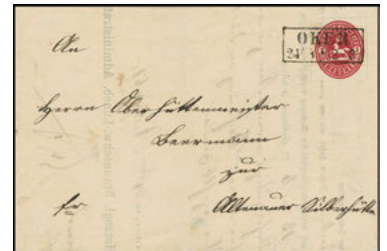 OKER
An
Herrn Oberhüttenmeister
Beermann
zur
Altenauer Silberhütte
fr